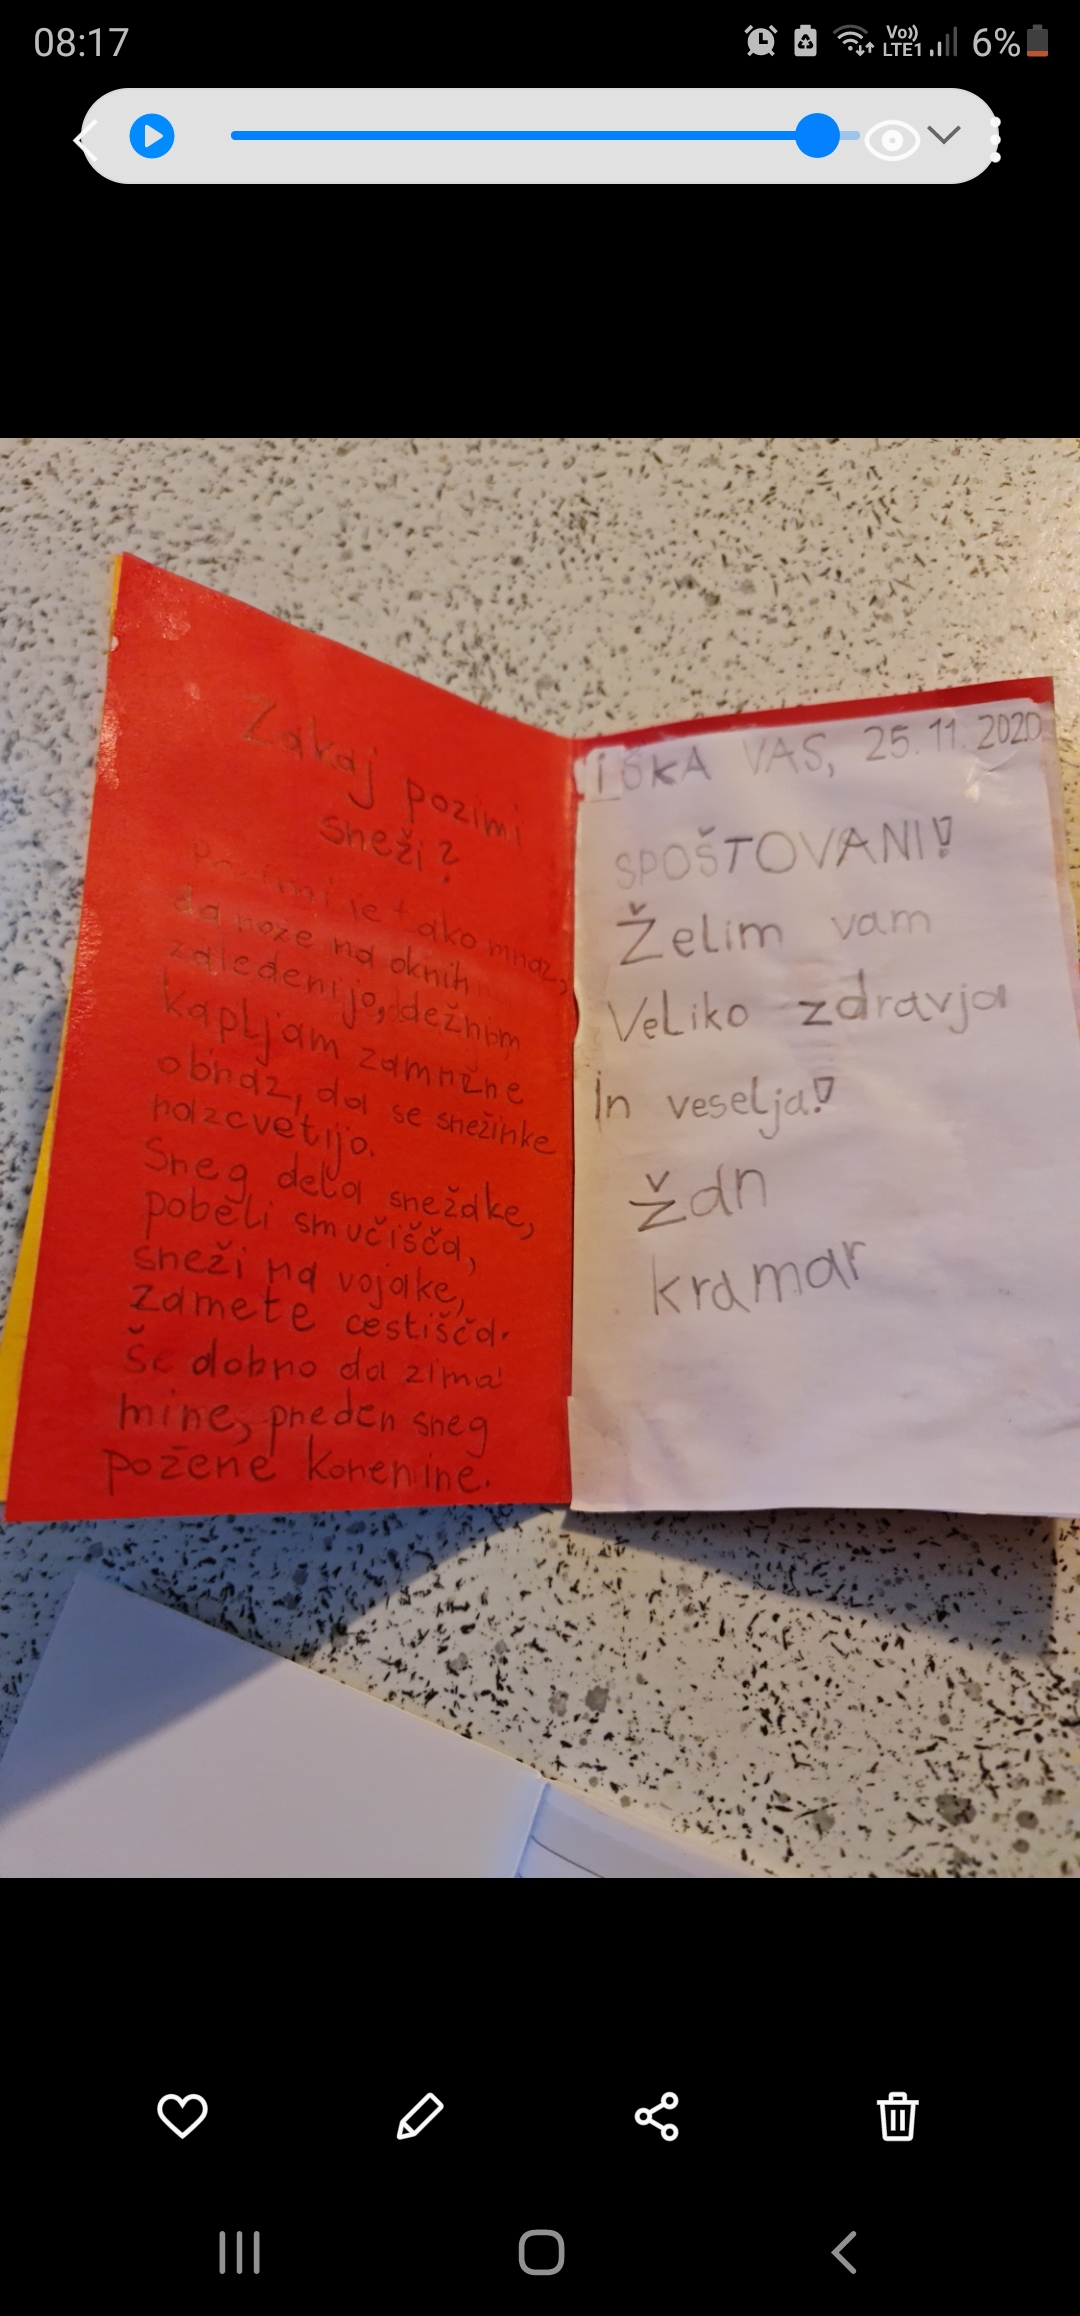 08:17
Vo))
LTE1
6%
Zakaj pozimi
sneži?
Pozimi je tako mraz,
da rože na oknih
zaledenijo, dežnim
kapljam zamrzne
obraz, da se snežinke
razcvetijo.
Sneg dela snežake,
pobeli smučišča,
sneži na vojake,
zamete cestišča.
Še dobro da zima
mine, preden sneg
požene korenine.
IŠKA VAS, 25.11.2020
SPOŠTOVANI!
Želim vam
Veliko zdravja
In veselja!
Žan
kramar